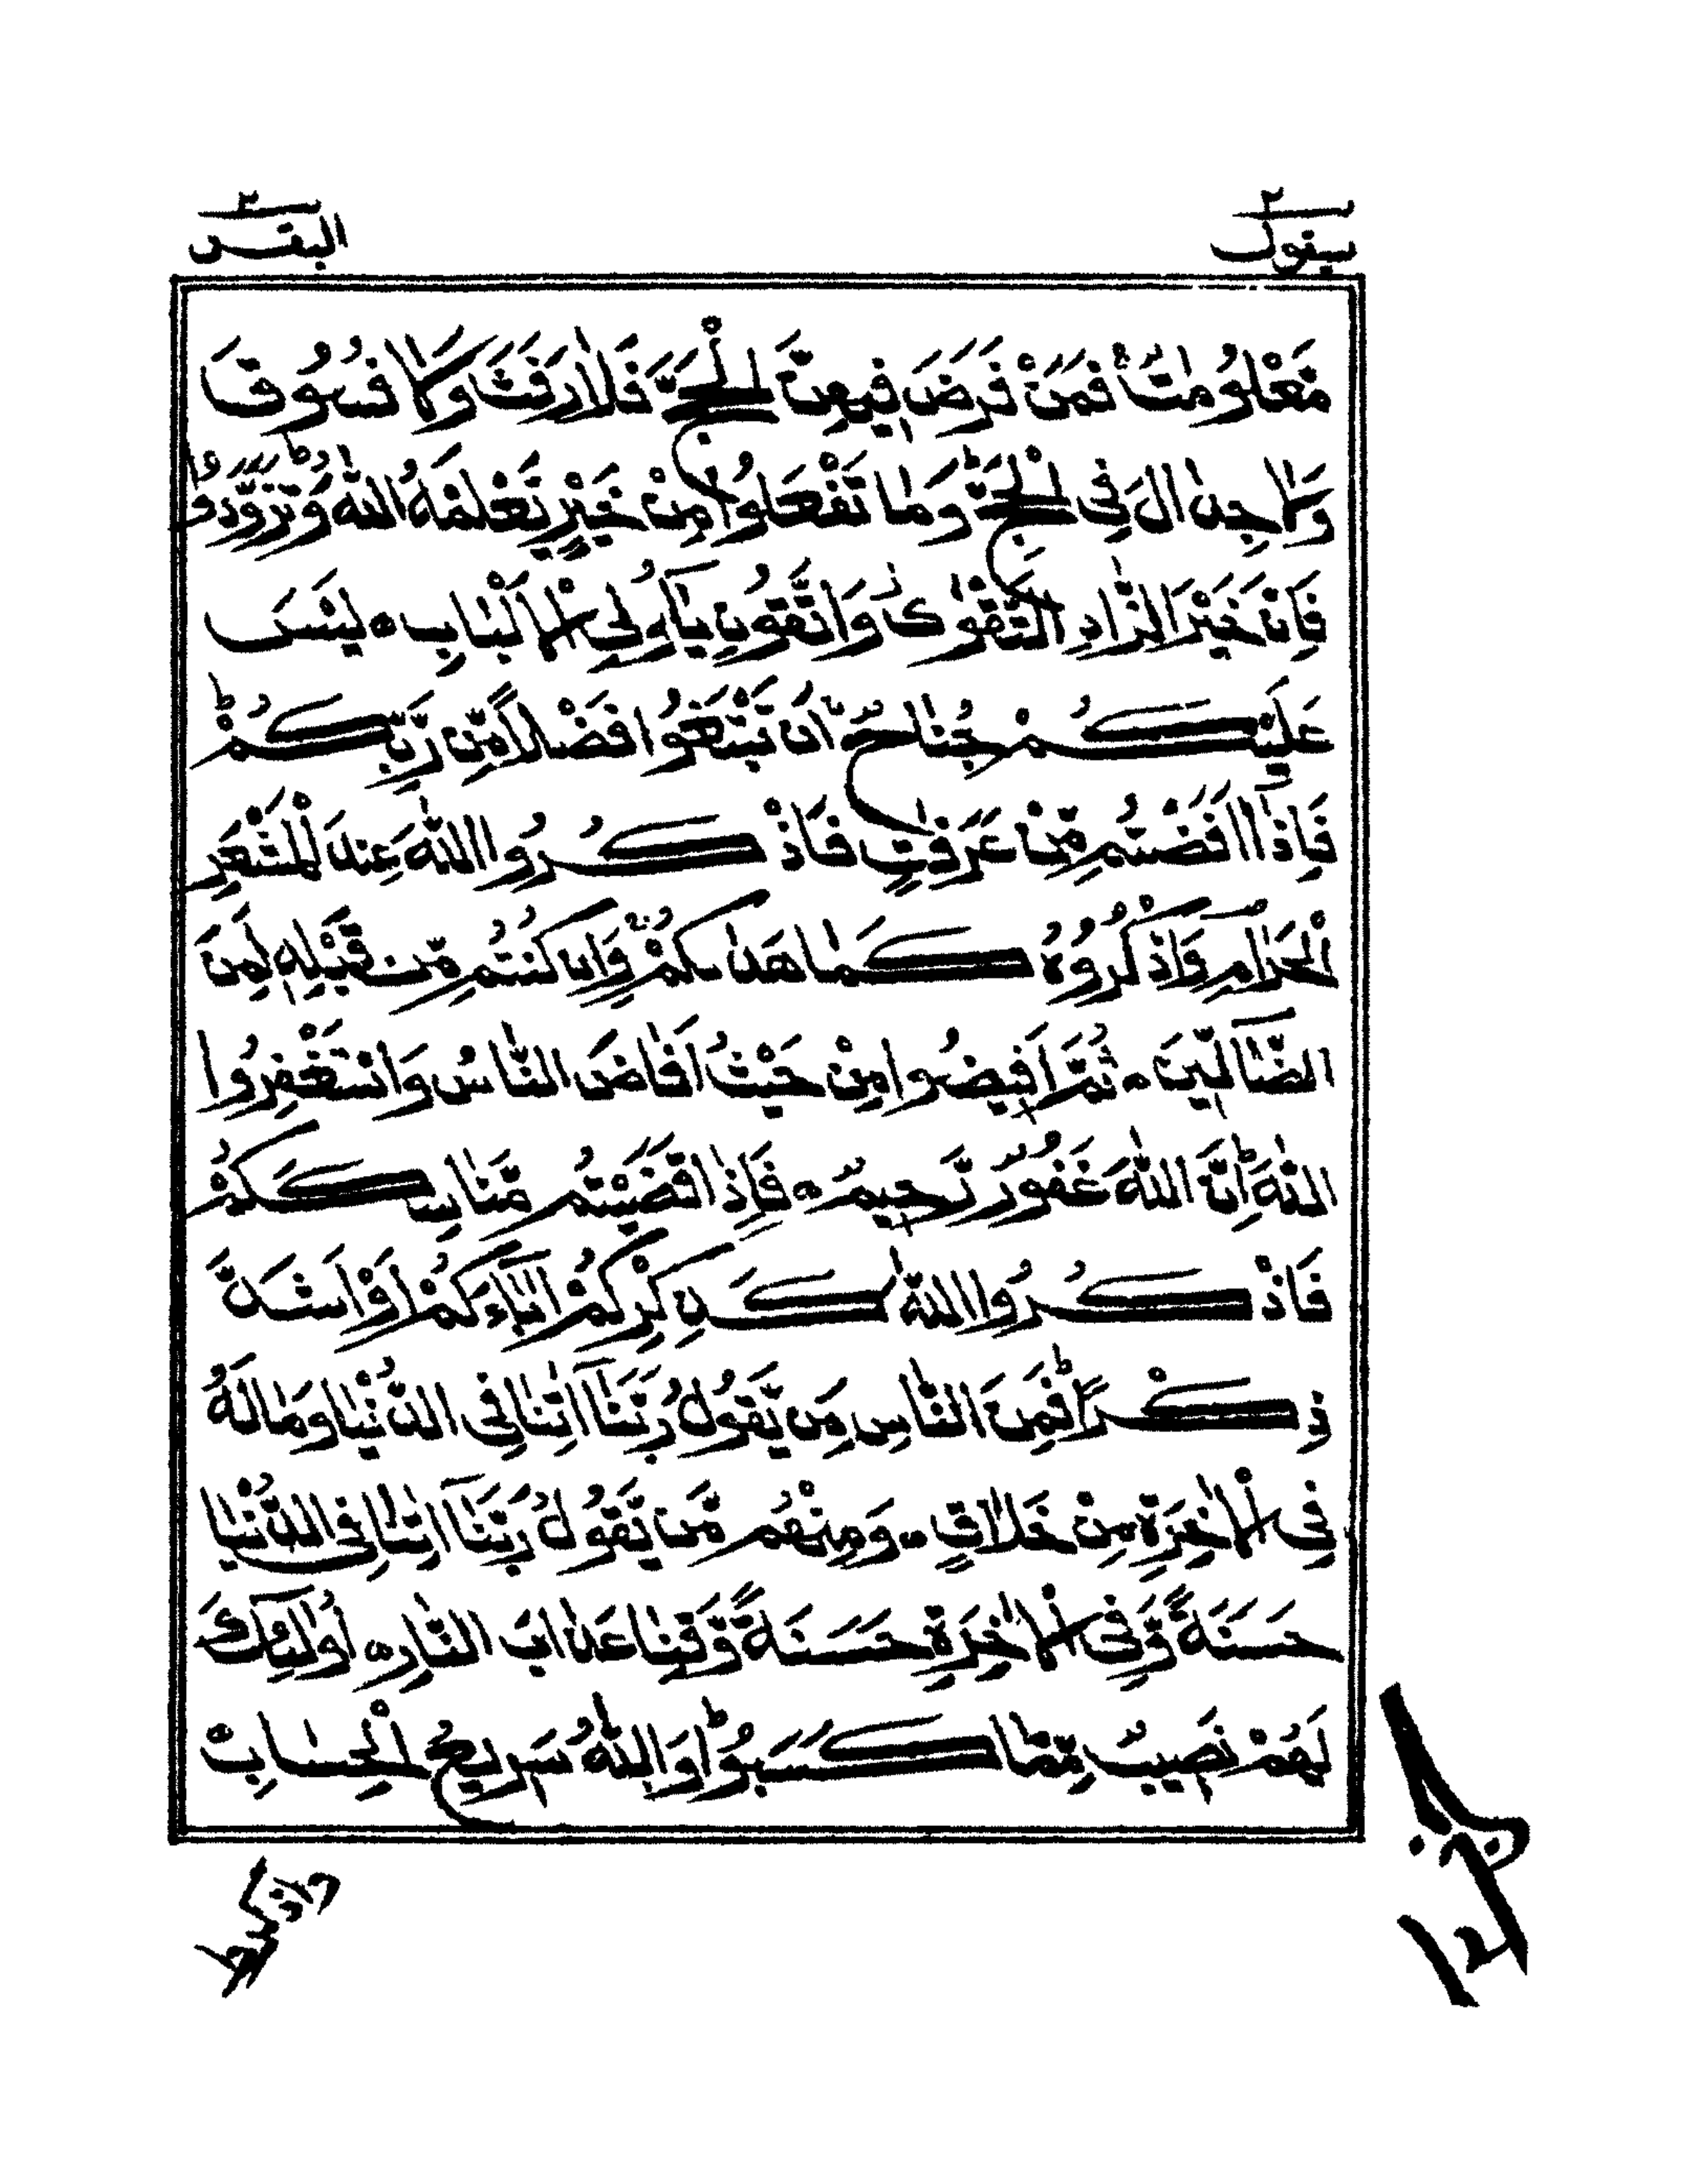 سيقول ٢
البقرة ٢
مَّعْلُومٰتٌ ۚ فَمَنْ فَرَضَ فِيهِنَّ الْحَجَّ فَلَا رَفَثَ وَلَا فُسُوقَ
وَلَا جِدَالَ فِي الْحَجِّ ؕ وَمَا تَفْعَلُوا مِنْ خَيْرٍ يَّعْلَمْهُ اللّٰهُ ؕ وَتَزَوَّدُوا
فَاِنَّ خَيْرَ الزَّادِ التَّقْوٰى وَاتَّقُونِ يٰٓاُولِي الْاَلْبَابِ ۝ لَيْسَ
عَلَيْكُمْ جُنَاحٌ اَنْ تَبْتَغُوا فَضْلًا مِّنْ رَّبِّكُمْ ؕ
فَاِذَآ اَفَضْتُمْ مِّنْ عَرَفٰتٍ فَاذْكُرُوا اللّٰهَ عِنْدَ الْمَشْعَرِ
الْحَرَامِ ص وَاذْكُرُوهُ كَمَا هَدٰىكُمْ ۚ وَاِنْ كُنْتُمْ مِّنْ قَبْلِهٖ لَمِنَ
الضَّآلِّينَ ۝ ثُمَّ اَفِيضُوا مِنْ حَيْثُ اَفَاضَ النَّاسُ وَاسْتَغْفِرُوا
اللّٰهَ ؕ اِنَّ اللّٰهَ غَفُورٌ رَّحِيمٌ ۝ فَاِذَا قَضَيْتُمْ مَّنَاسِكَكُمْ
فَاذْكُرُوا اللّٰهَ كَذِكْرِكُمْ اٰبَآءَكُمْ اَوْ اَشَدَّ
ذِكْرًا ؕ فَمِنَ النَّاسِ مَنْ يَّقُولُ رَبَّنَآ اٰتِنَا فِي الدُّنْيَا وَمَا لَهُ
فِي الْاٰخِرَةِ مِنْ خَلَاقٍ ۝ وَمِنْهُمْ مَّنْ يَّقُولُ رَبَّنَآ اٰتِنَا فِي الدُّنْيَا
حَسَنَةً وَّفِي الْاٰخِرَةِ حَسَنَةً وَّقِنَا عَذَابَ النَّارِ ۝ اُولٰٓئِكَ
لَهُمْ نَصِيبٌ مِّمَّا كَسَبُوا ؕ وَاللّٰهُ سَرِيعُ الْحِسَابِ ۝
واذكروا